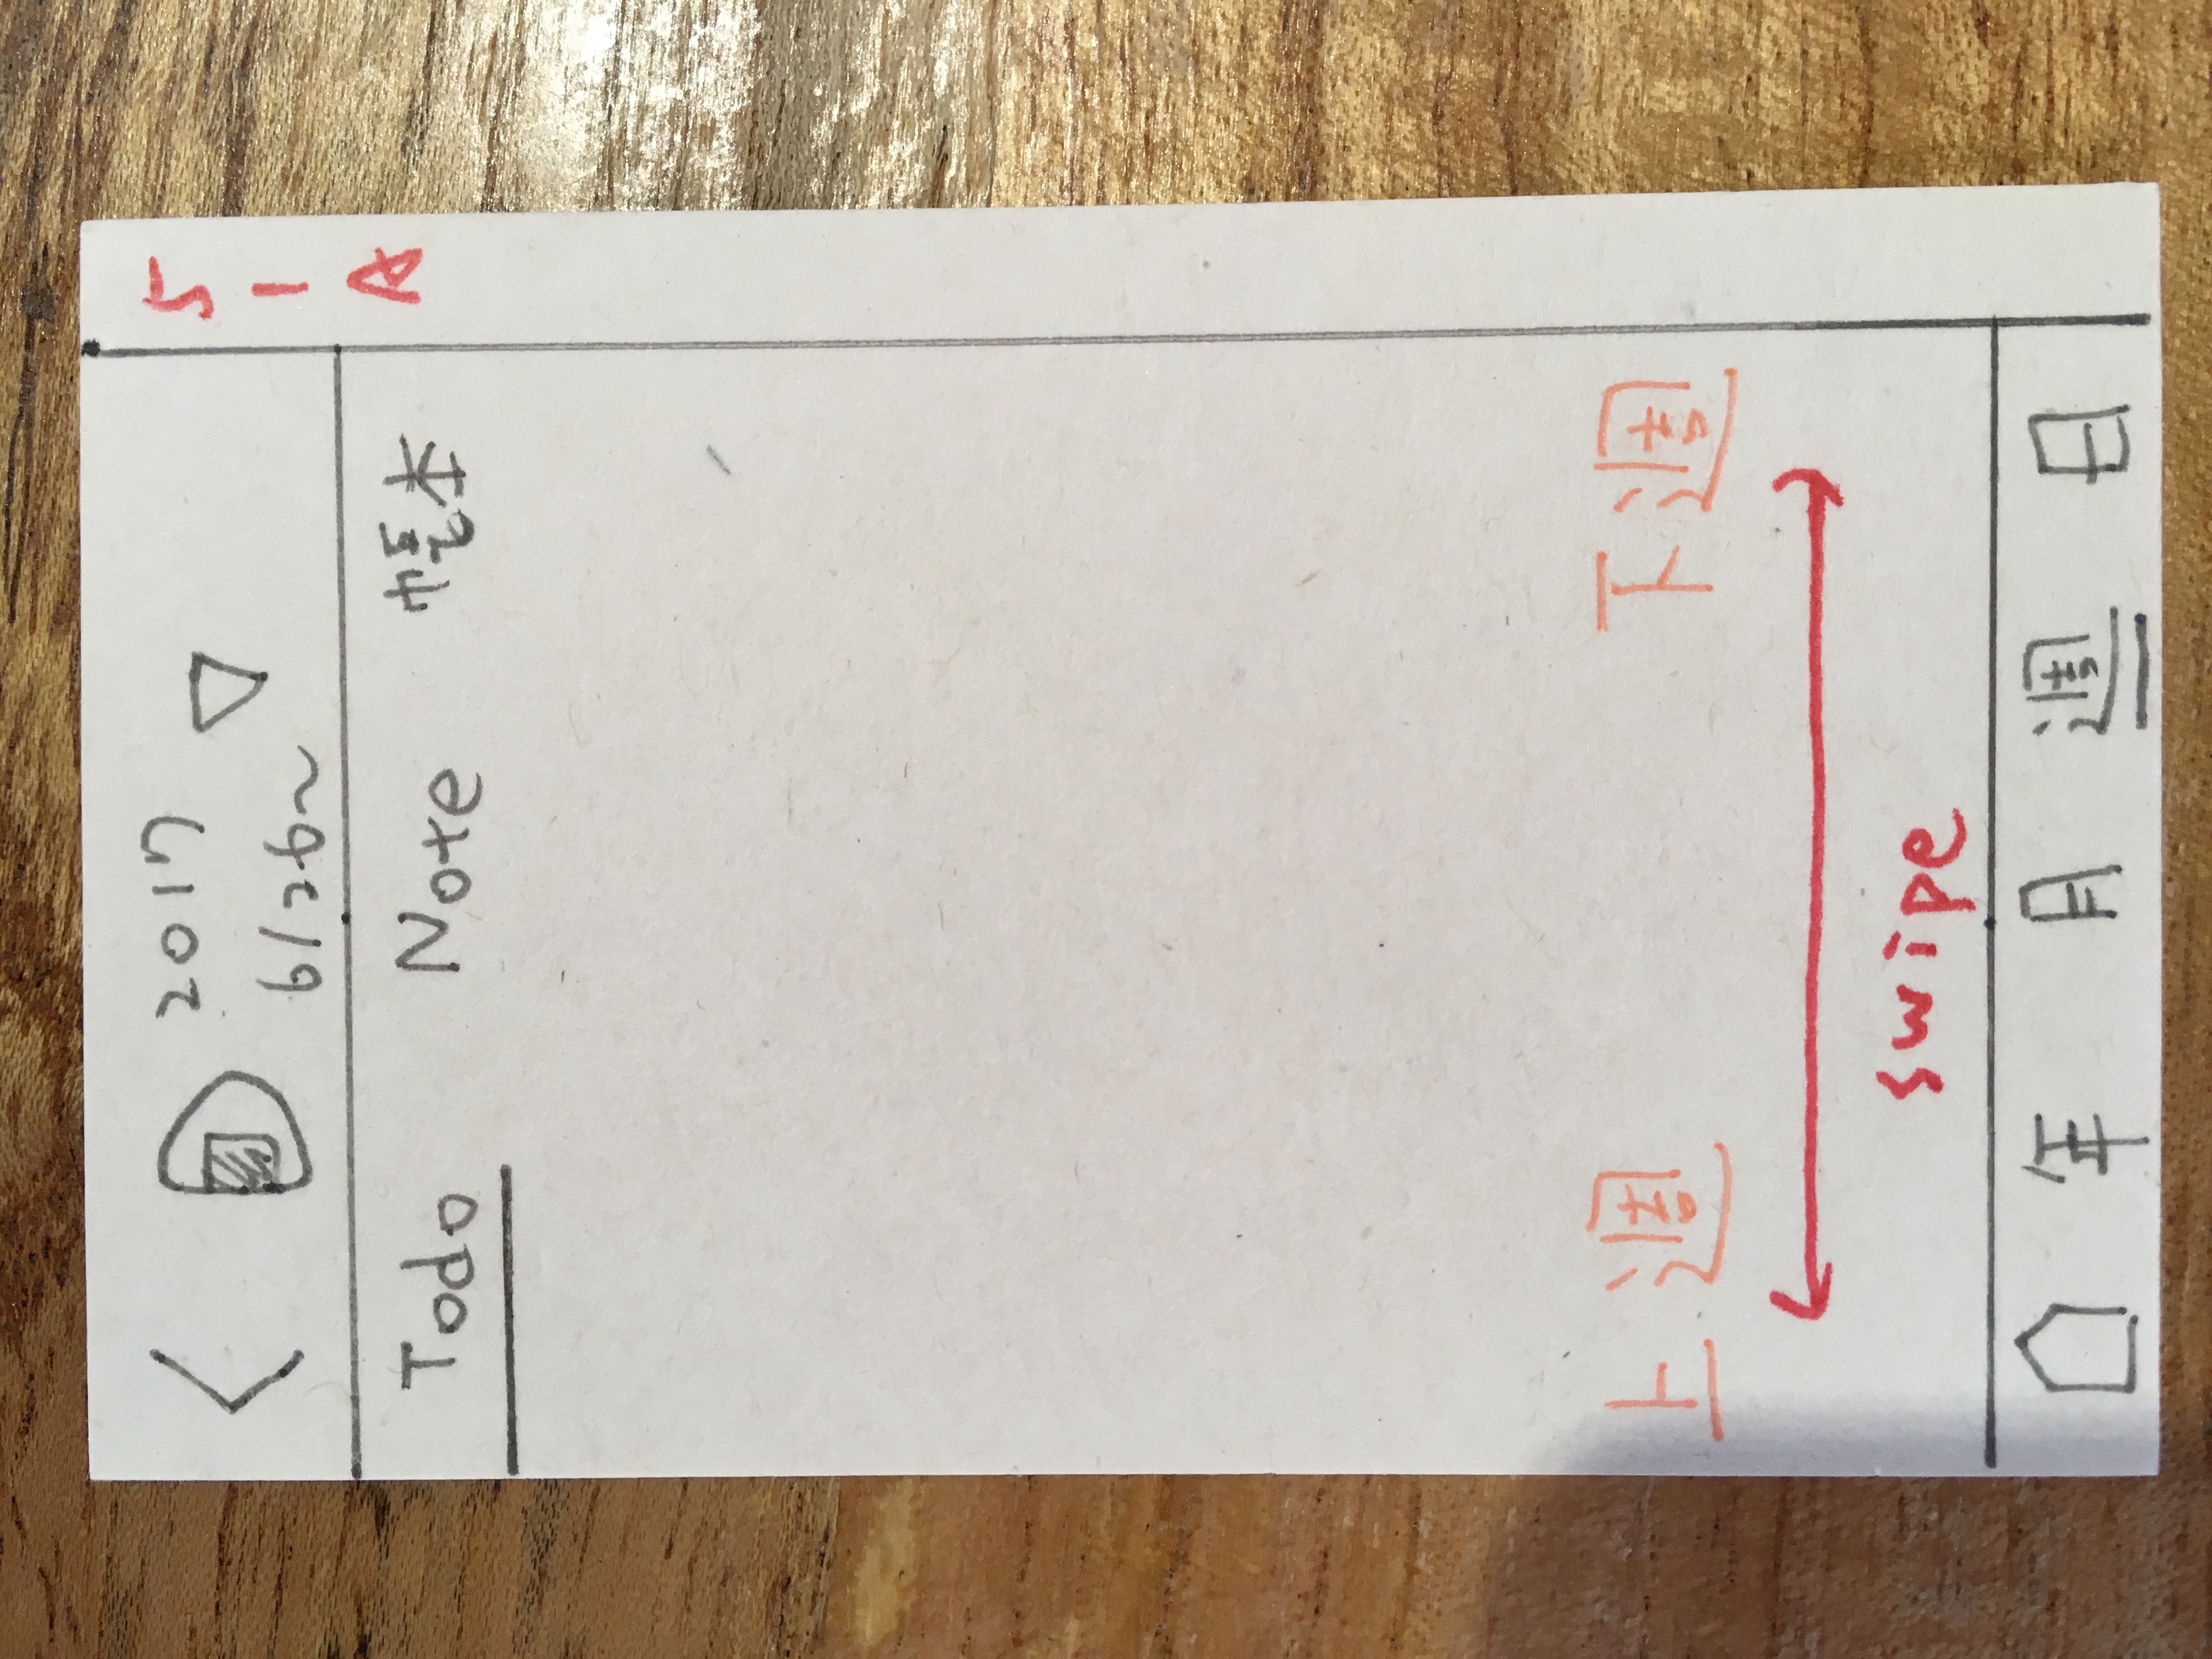 2017
6/26~
Todo Note 帳本
上週 下週
swipe
年 月 週 日
51A